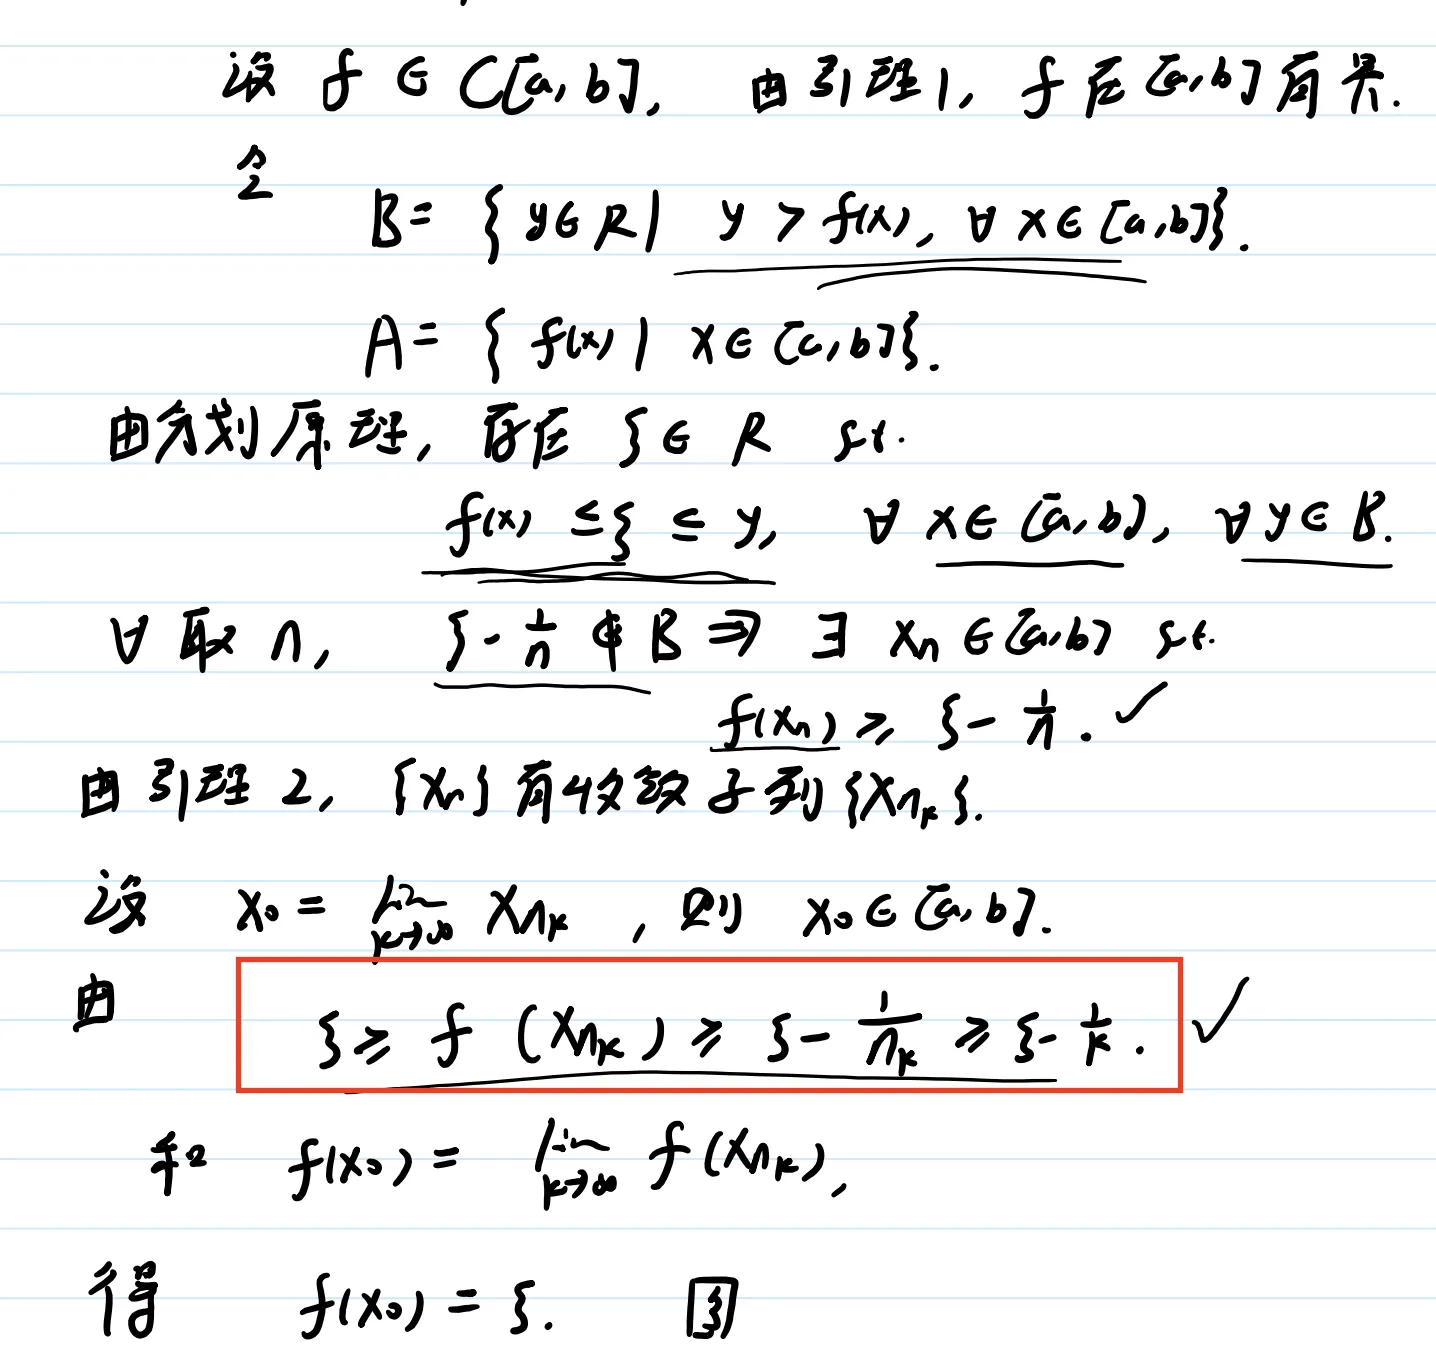 设 f ∈ C[a, b], 由引理1, f 在 [a, b] 有界.
令
B = { y ∈ R | y > f(x), ∀ x ∈ [a, b] }.
A = { f(x) | x ∈ [a, b] }.
由分划原理, 存在 ξ ∈ R st.
f(x) ≤ ξ ≤ y, ∀ x ∈ [a, b], ∀ y ∈ B.
∀ 取 n, ξ - 1/n ∉ B ⇒ ∃ xₙ ∈ [a, b] st.
f(xₙ) ≥ ξ - 1/n. ✓
由引理2, {xₙ} 有收敛子列 {x_{n_k}}.
设 x₀ = lim_{k→∞} x_{n_k}, 则 x₀ ∈ [a, b].
由 ξ ≥ f(x_{n_k}) ≥ ξ - 1/n_k ≥ ξ - 1/k. ✓
和 f(x₀) = lim_{k→∞} f(x_{n_k}),
得 f(x₀) = ξ.